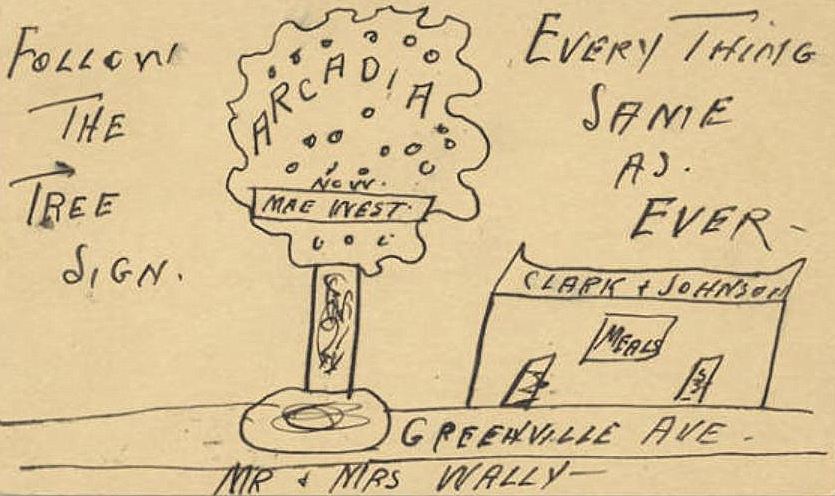 FOLLOW
THE
TREE
SIGN.
ARCADIA
NOW.
MAE WEST.
EVERY THING
SAME
AS.
EVER -
CLARK & JOHNSON
MEALS
GREENVILLE AVE -
MR & MRS WALLY -